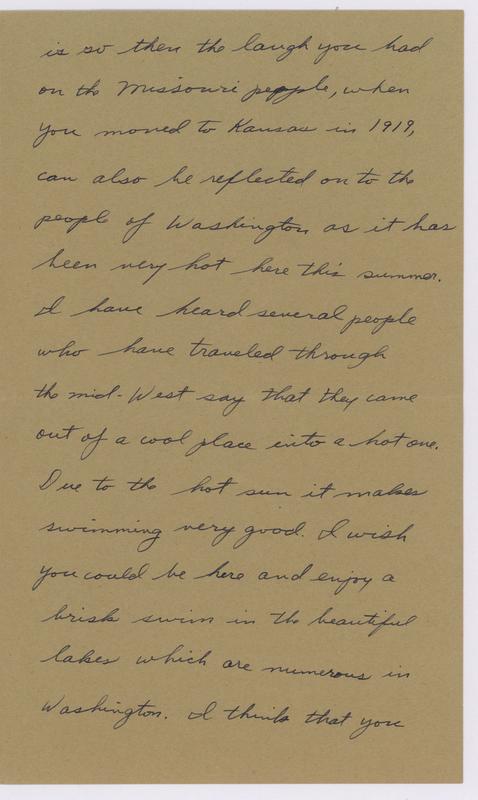 is so then the laugh you had
on the Missouri people, when
you moved to Kansas in 1919,
can also be reflected on to the
people of Washington as it has
been very hot here this summer.
I have heard several people
who have traveled through
the mid-West say that they came
out of a cool place into a hot one.
Due to the hot sun it makes
swimming very good. I wish
you could be here and enjoy a
brisk swim in the beautiful
lakes which are numerous in
Washington. I think that you